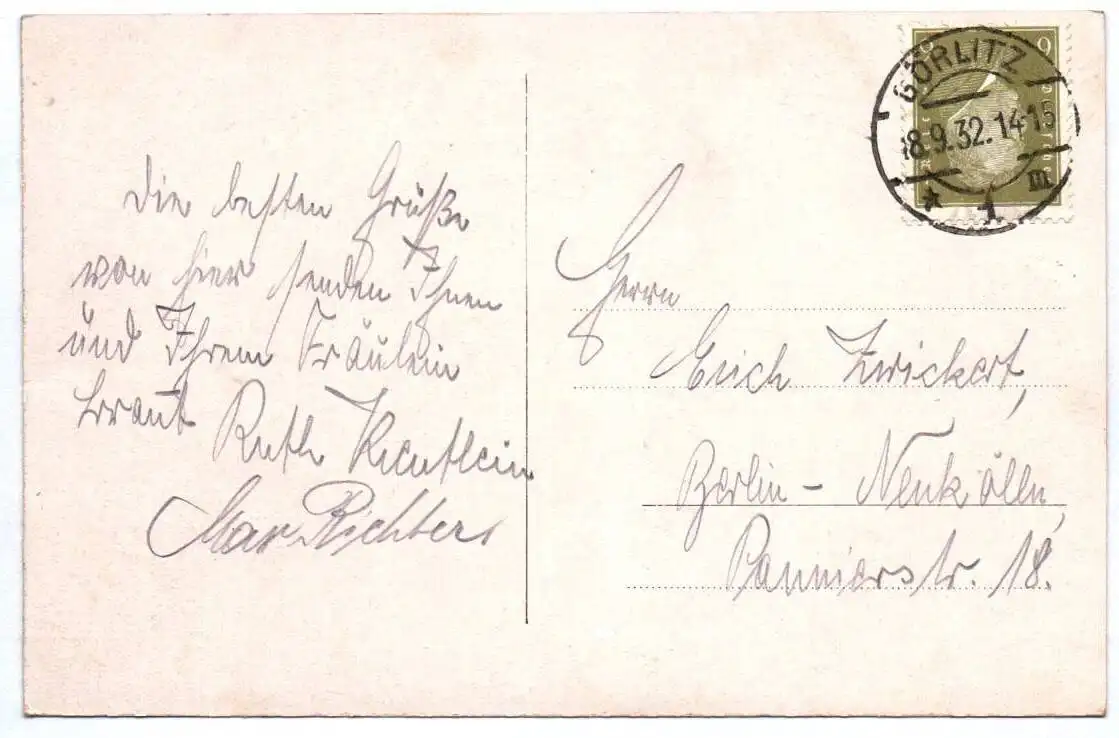 Die besten Grüße
von hier senden Ihnen
und Ihrem Fräulein
Braut Ruth
Max Richter
GÖRLITZ
18.9.32.14-15
* 1 m
Herrn
Erich Zwickert,
Berlin - Neukölln,
Pannierstr. 18.